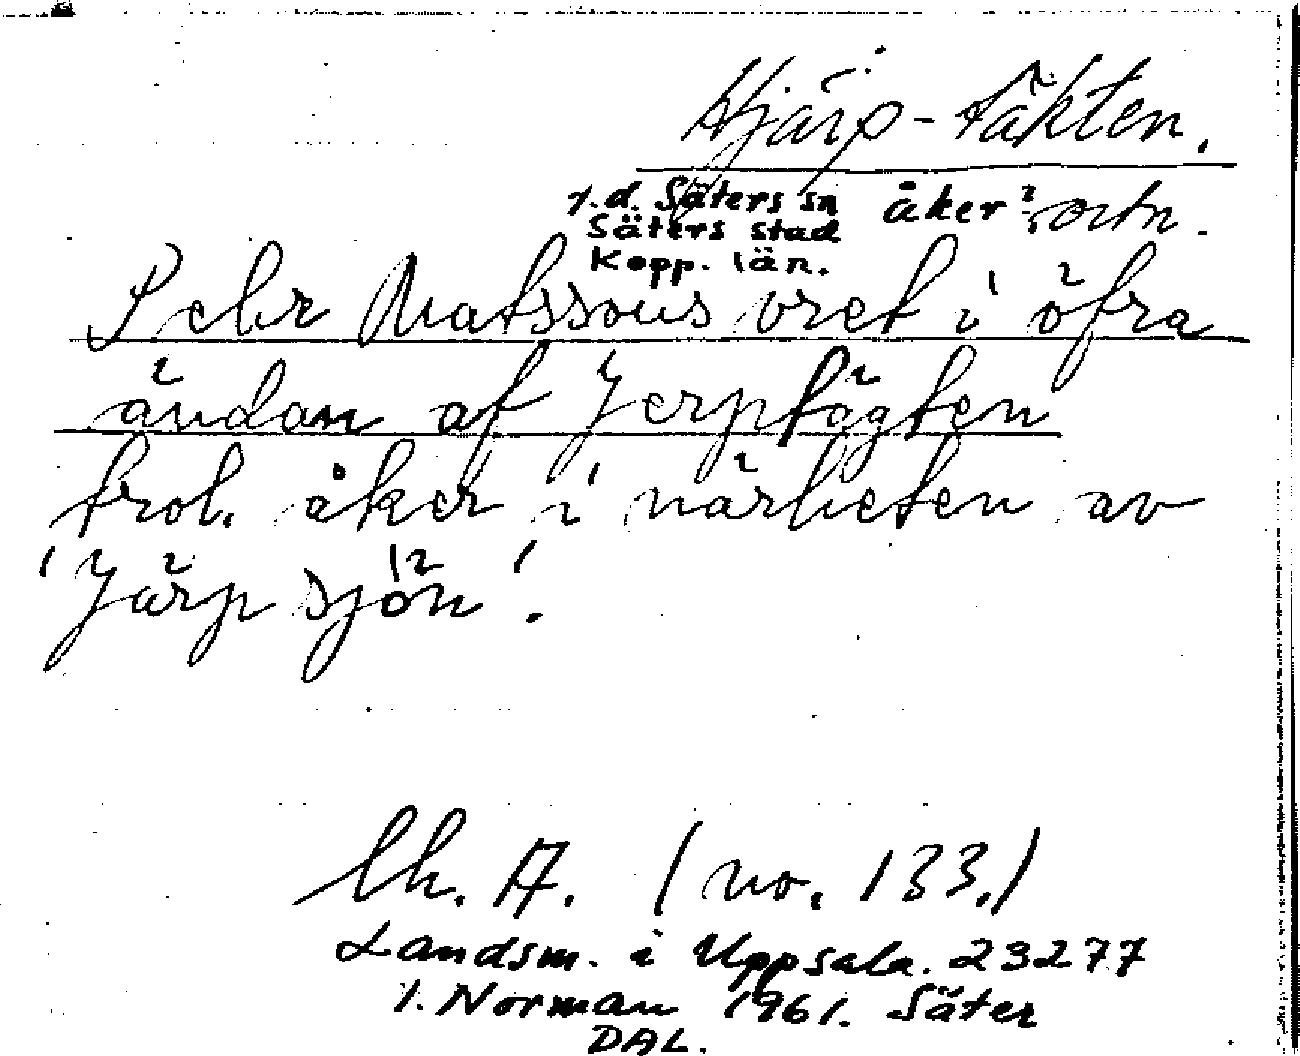 Hjärp-täkten.
f.d. Säters sn åker?, ortn.
Säters stad
Kopp. län.
Pehr Matssons vret i öfra
ändan af Jerptägten
trol. åker i närheten av
'Järpsjön'.
lh. A. (no. 133.)
Landsm. i Uppsala. 23277
I. Norman 1961. Säter
DAL.